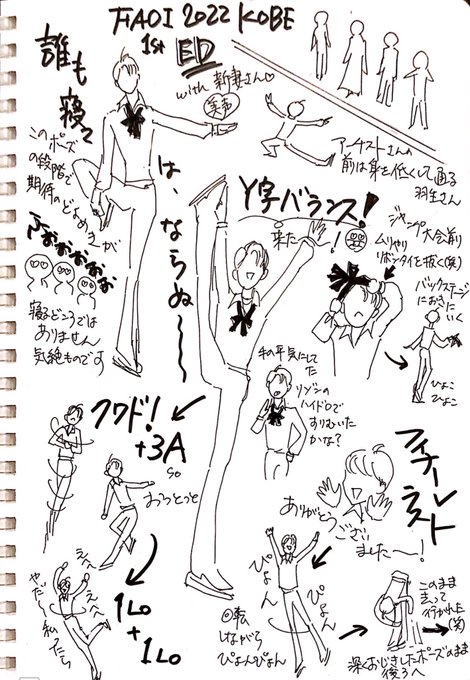 FAOI 2022 KOBE
1st ED
with 新妻さん♡
美声
誰も寝て
は、ならぬ〜
この
ポーズ
の段階で
期待のどよめきが
寝るどころでは
ありません
気絶ものです
アーチストさんの
前は身を低くして通る
羽生さん
Y字バランス!
来たー!
ジャンプ大会前
ムリやり
リボンタイを抜く(笑)
バックステージ
においたく
ひょこ
ひょこ
クワド!
+3A
so
おっとっと
1Lo
+
1Lo
えへへ
やだー
私ったら
リンゾンの
ハイドロで
すりむいた
かな?
フィナーレ
ラスト
ありがとう
ござい
ました〜!
ぴょん
ぴょん
回転
しながら
ぴょんぴょん
このまま
走って
行かれた
(笑)
深くおじぎしたポーズのまま
後ろへ